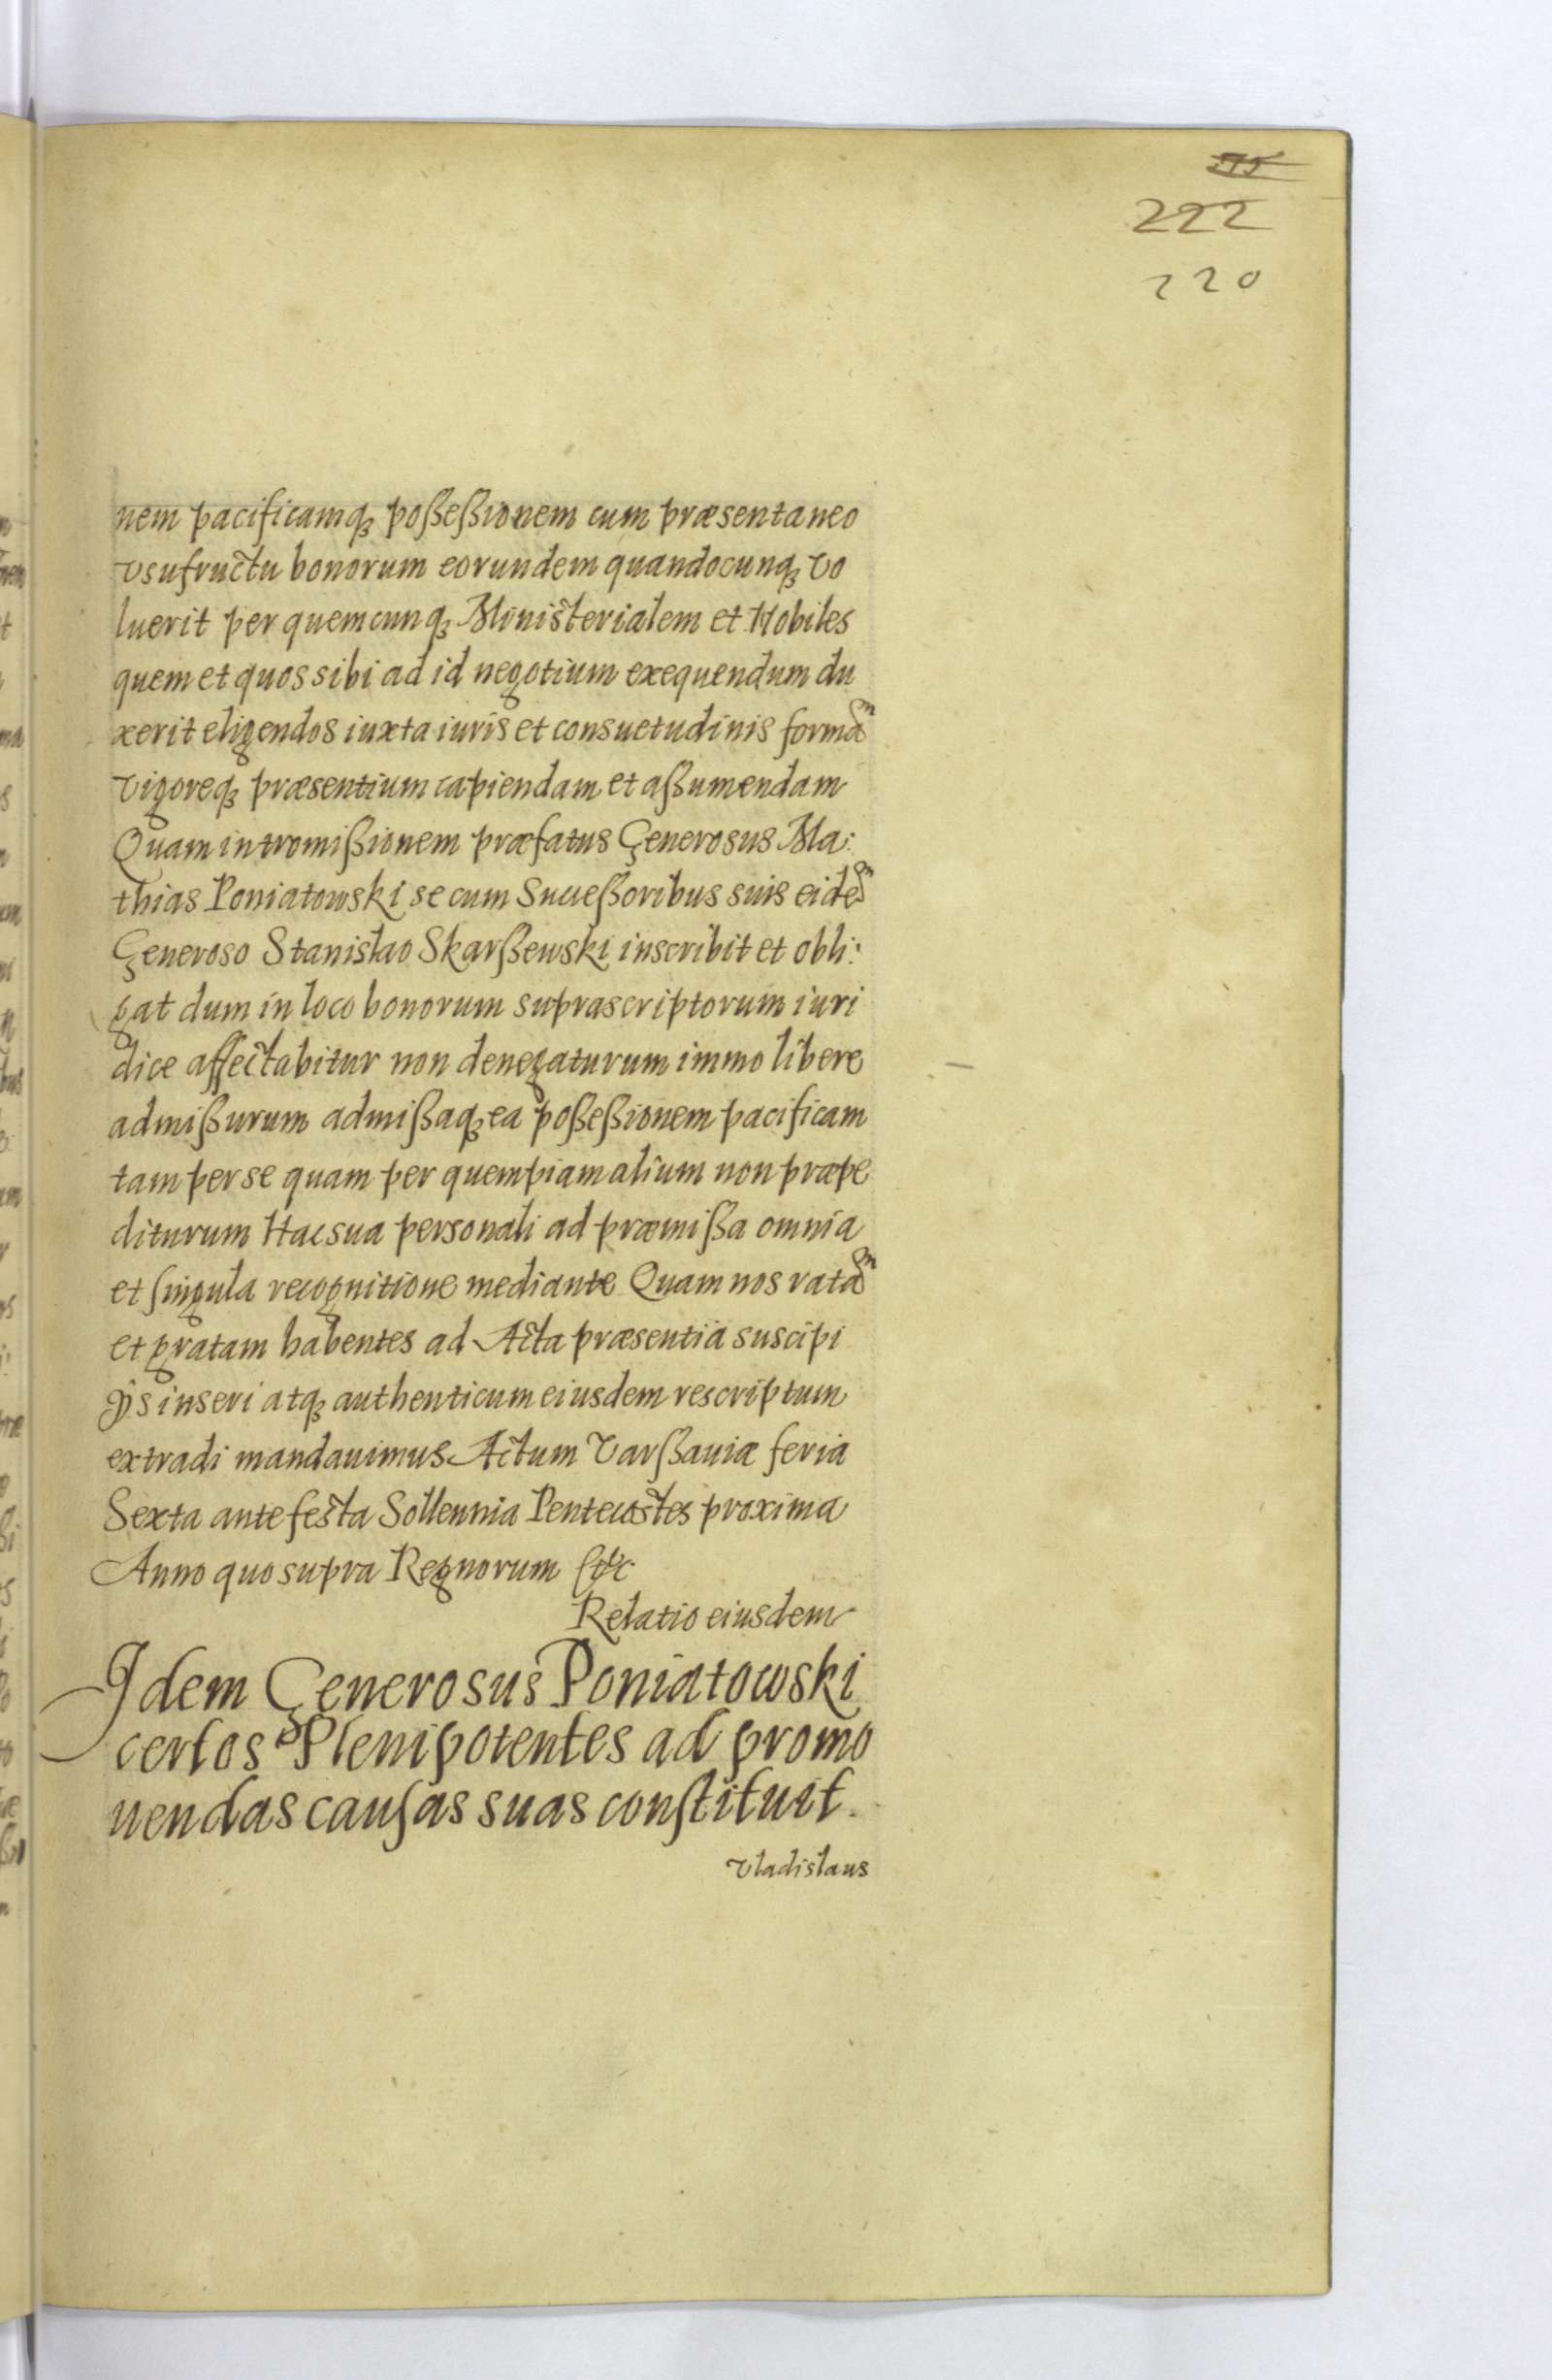 222
220
nem pacificamq3 poßeßionem cum præsentaneo
vsufructu bonorum eorundem quandocunq3 vo
luerit per quemcunq3 Ministerialem et Nobiles
quem et quos sibi ad id negotium exequendum du
xerit eligendos iuxta iuris et consuetudinis formam
vigoreq3 præsentium capiendam et aßumendam
Quam intromißionem præfatus Generosus Ma:
thias Poniatowski se cum Succeßoribus suis eidem
Generoso Stanislao Skarßewski inscribit et obli:
gat dum in loco bonorum suprascriptorum iuri
dice affectabitur non denegaturum immo libere
admißurum admißaq3 ea poßeßionem pacificam
tam per se quam per quempiam alium non præpe
diturum Hac sua personali ad præmißa omnia
et singula recognitione mediante Quam nos ratam
et gratam habentes ad Acta præsentia suscipi
ijs inseri atq3 authenticum eiusdem rescriptum
extradi mandauimus Actum Varßauiæ feria
Sexta ante festa Sollennia Pentecostes proxima
Anno quo supra Regnorum etc
Relatio eiusdem
Idem Generosus Poniatowski
certos Plenipotentes ad promo
uendas causas suas constituit.
Vladislaus